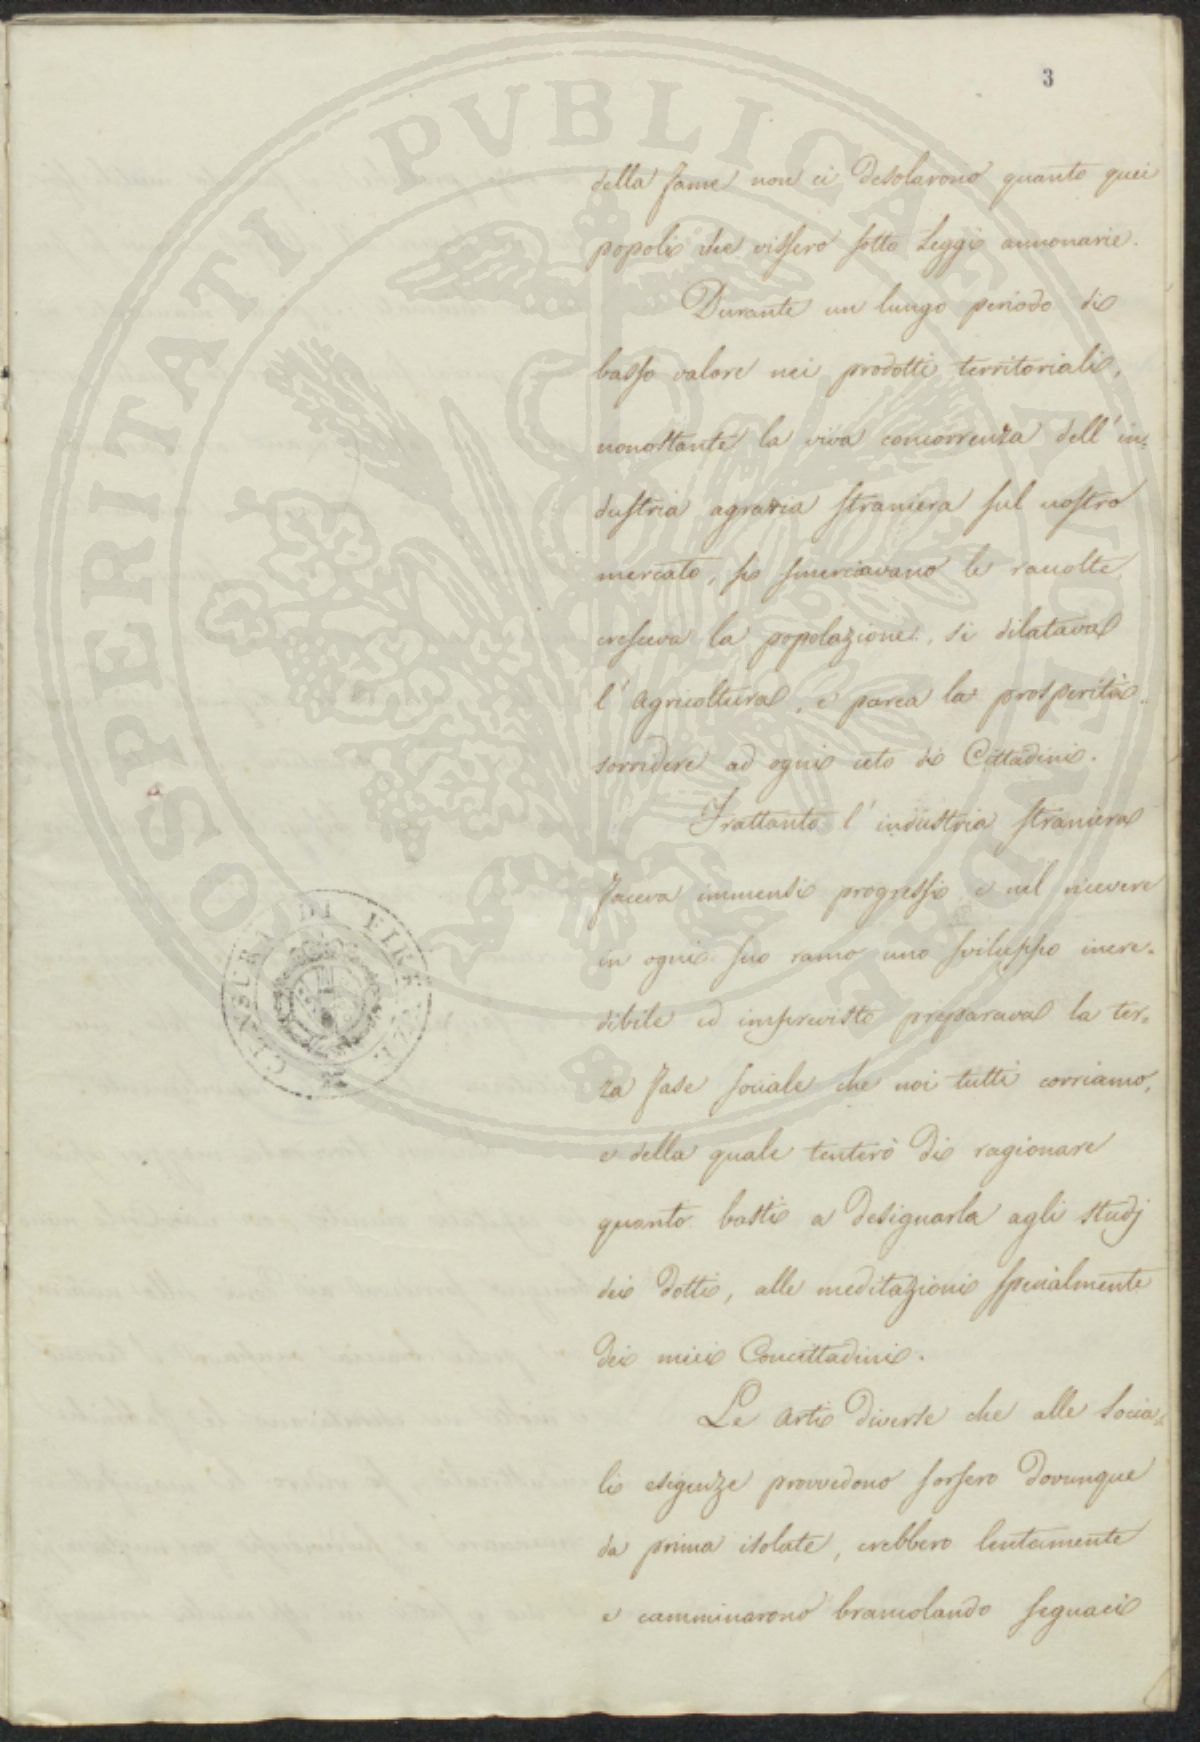 3
della fame non ci desolarono quanto quei
popoli che vissero sotto Leggi annonarie.
Durante un lungo periodo di
basso valore nei prodotti territoriali,
nonostante la viva concorrenza dell'in-
dustria agraria straniera sul nostro
mercato, si smerciavano le raccolte,
cresceva la popolazione, si dilatava
l'Agricoltura, e parea la prosperità
sorridere ad ogni ceto di Cittadini.
Frattanto l'industria straniera
faceva immensi progressi e nel ricevere
in ogni suo ramo uno sviluppo incre-
dibile ed imprevisto preparava la ter-
za fase sociale che noi tutti corriamo,
e della quale tenterò di ragionare
quanto basti a designarla agli studj
dei dotti, alle meditazioni specialmente
dei miei Concittadini.
Le Arti diverse che alle socia-
li esigenze provvedono sorsero dovunque
da prima isolate, crebbero lentamente
e camminarono brancolando seguaci
PROSPERITATI PVBLICAE AVGENDAE
CENSURA DI FIRENZE